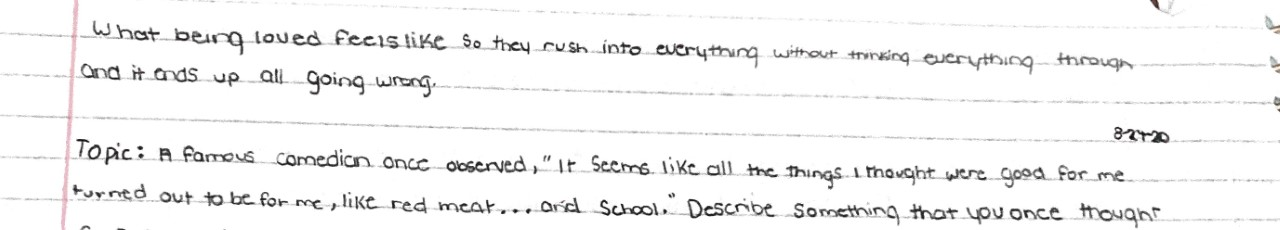 What being loved feels like so they rush into everything without thinking everything through
and it ends up all going wrong.
Topic: A famous comedian once observed, "It seems like all the things I thought were good for me
turned out to be for me, like red meat... and School." Describe something that you once thought